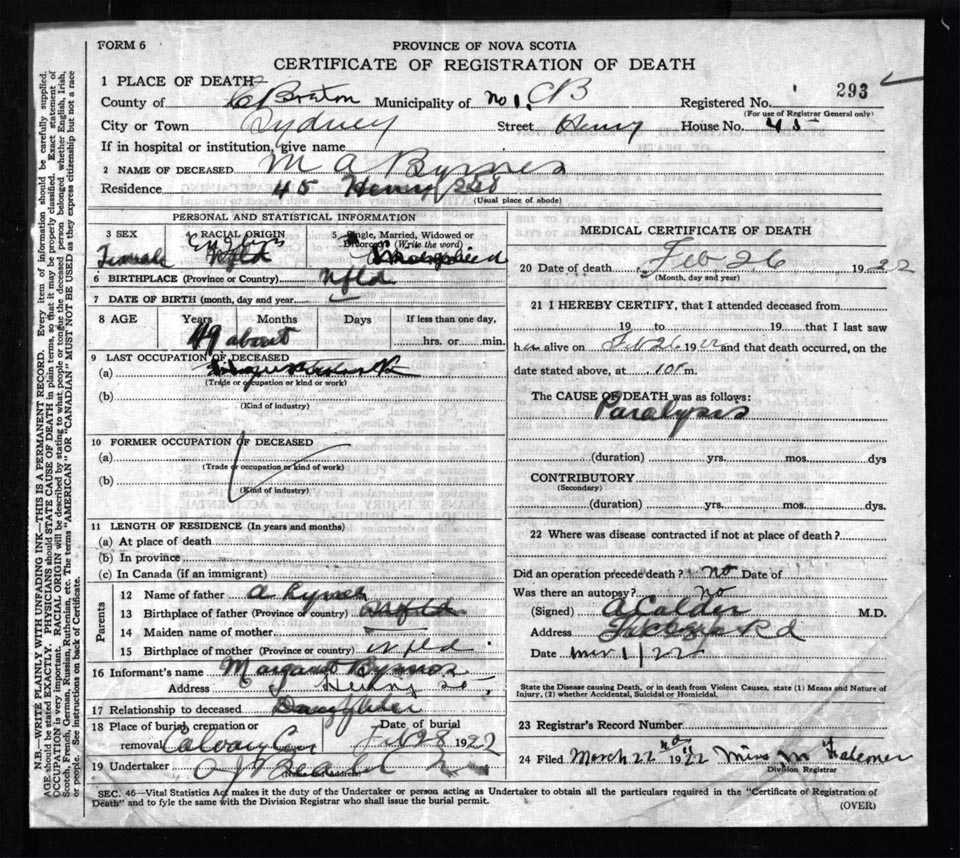 FORM 6
PROVINCE OF NOVA SCOTIA
CERTIFICATE OF REGISTRATION OF DEATH
293
1 PLACE OF DEATH
County of C Breton Municipality of No 1. CB Registered No.
(For use of Registrar General only)
City or Town Sydney Street Henry House No. 45
If in hospital or institution, give name
2 NAME OF DECEASED M A Byrnes
Residence 45 Henry
(Usual place of abode)
PERSONAL AND STATISTICAL INFORMATION
3 SEX Female
4 RACIAL ORIGIN English Nfld
5 Single, Married, Widowed or Divorced (Write the word)
6 BIRTHPLACE (Province or Country) Nfld
7 DATE OF BIRTH (month, day and year)
8 AGE Years Months Days If less than one day,
49 about hrs. or min.
9 LAST OCCUPATION OF DECEASED
(a)
(Trade or occupation or kind of work)
(b)
(Kind of industry)
10 FORMER OCCUPATION OF DECEASED
(a)
(Trade or occupation or kind of work)
(b)
(Kind of industry)
11 LENGTH OF RESIDENCE (In years and months)
(a) At place of death
(b) In province
(c) In Canada (if an immigrant)
Parents
12 Name of father A
13 Birthplace of father (Province or country) Nfld
14 Maiden name of mother
15 Birthplace of mother (Province or country) Nfld
16 Informant's name Margaret Byrnes
Address Henry St
17 Relationship to deceased Daughter
18 Place of burial, cremation or removal Calvary Cem
Date of burial Feb 28 1922
19 Undertaker
(Name and Address)
MEDICAL CERTIFICATE OF DEATH
20 Date of death Feb 26 1922
(Month, day and year)
21 I HEREBY CERTIFY, that I attended deceased from
19 to 19 that I last saw
her alive on Feb 26 1922 and that death occurred, on the
date stated above, at m.
The CAUSE OF DEATH was as follows:
Paralysis
(duration) yrs. mos. dys
CONTRIBUTORY
(Secondary)
(duration) yrs. mos. dys.
22 Where was disease contracted if not at place of death?
Did an operation precede death? No Date of
Was there an autopsy? No
(Signed) A Calder M.D.
Address Rd
Date Mar 1/22
State the Disease causing Death, or in death from Violent Causes, state (1) Means and Nature of
Injury, (2) whether Accidental, Suicidal or Homicidal.
23 Registrar's Record Number
24 Filed March 22nd 1922 Miss M
Division Registrar
SEC. 46—Vital Statistics Act makes it the duty of the Undertaker or person acting as Undertaker to obtain all the particulars required in the "Certificate of Registration of
Death" and to fyle the same with the Division Registrar who shall issue the burial permit.
(OVER)
N.B.—WRITE PLAINLY WITH UNFADING INK—THIS IS A PERMANENT RECORD. Every item of information should be carefully supplied.
AGE should be stated EXACTLY. PHYSICIANS should STATE CAUSE OF DEATH in plain terms, so that it may be properly classified. Exact statement of
OCCUPATION is very important. RACIAL ORIGIN will be described by stating to what people or tongue the deceased person belonged whether English, Irish,
Scotch, French, German, Russian, Ruthenian, etc. The terms "AMERICAN" OR "CANADIAN" MUST NOT BE USED as they express citizenship but not a race
or people. See instructions on back of Certificate.